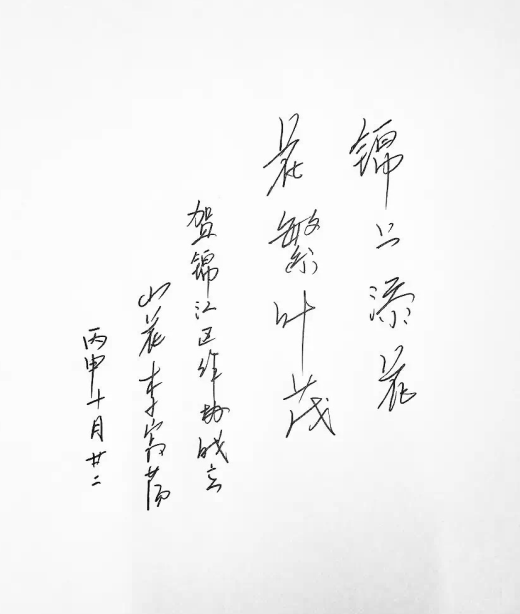 锦上添花
花繁叶茂
贺锦江区作协成立
山花李寂荡
丙申十月廿二